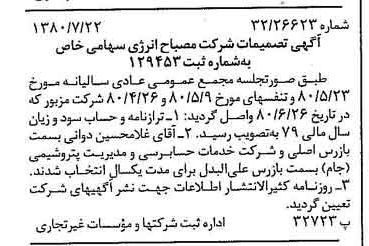 شماره ۳۲/۲۶۶۲۳ ۱۳۸۰/۷/۲۲
آگهی تصمیمات شرکت مصباح انرژی سهامی خاص
به‌شماره ثبت ۱۲۹۴۵۳
طبق صورتجلسه مجمع عمومی عادی سالیانه مورخ
۸۰/۵/۲۳ و تنفسهای مورخ ۸۰/۵/۹ و ۸۰/۴/۲۶ شرکت مزبور که
در تاریخ ۸۰/۶/۲۶ واصل گردید: ۱ـ ترازنامه و حساب سود و زیان
سال مالی ۷۹ به‌تصویب رسید. ۲ـ آقای غلامحسین دوانی بسمت
بازرس اصلی و شرکت خدمات حسابرسی و مدیریت پتروشیمی
(جام) بسمت بازرس علی‌البدل برای مدت یکسال انتخاب شدند.
۳ـ روزنامه کثیرالانتشار اطلاعات جهت نشر آگهیهای شرکت
تعیین گردید.
پ ۳۲۷۲۳ اداره ثبت شرکتها و مؤسسات غیرتجاری